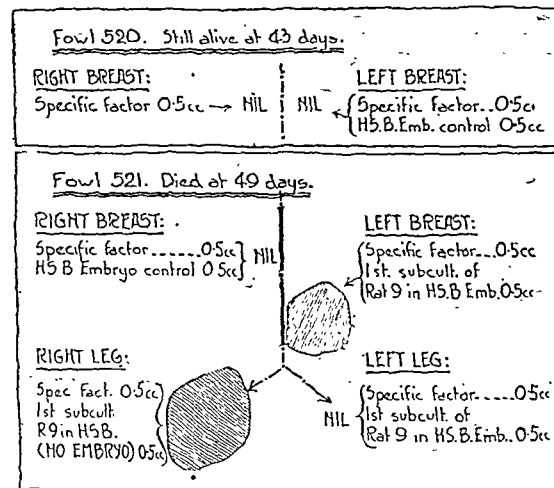 Fowl 520. Still alive at 43 days.
RIGHT BREAST:
Specific factor 0·5cc → NIL
LEFT BREAST:
NIL
Specific factor..0·5cc
HS.B.Emb. control 0·5cc
Fowl 521. Died at 49 days.
RIGHT BREAST:
Specific factor......0·5cc
HS B Embryo control 0·5cc
NIL
LEFT BREAST:
Specific factor....0·5cc
1st. subcult. of
Rat 9 in HS.B Emb.0·5cc
RIGHT LEG:
Spec Fact. 0·5cc
1st subcult.
R9 in HSB.
(NO EMBRYO) 0·5cc
LEFT LEG:
NIL
Specific factor.....0·5cc
1st subcult. of
Rat 9 in HS.B.Emb..0·5cc